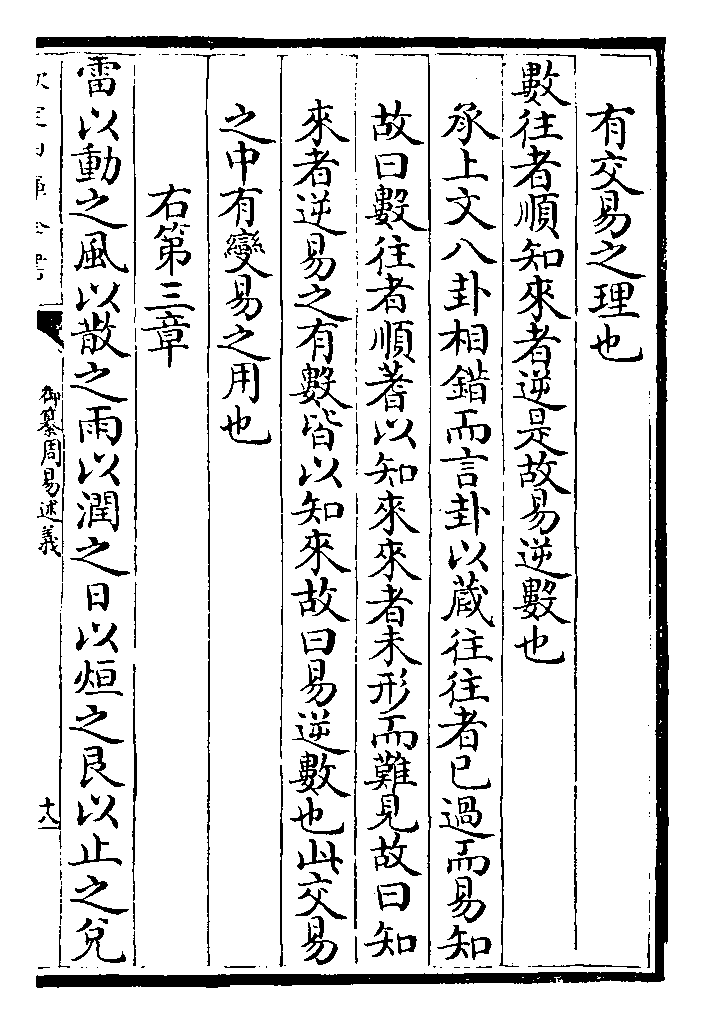 有交易之理也
數往者順知來者逆是故易逆數也
承上文八卦相錯而言卦以蔵往往者已過而易知
故曰數往者順蓍以知來來者未形而難見故曰知
來者逆易之有數皆以知來故曰易逆數也此交易
之中有變易之用也
右第三章
雷以動之風以散之雨以潤之日以烜之艮以止之兌
御纂周易述義
十八